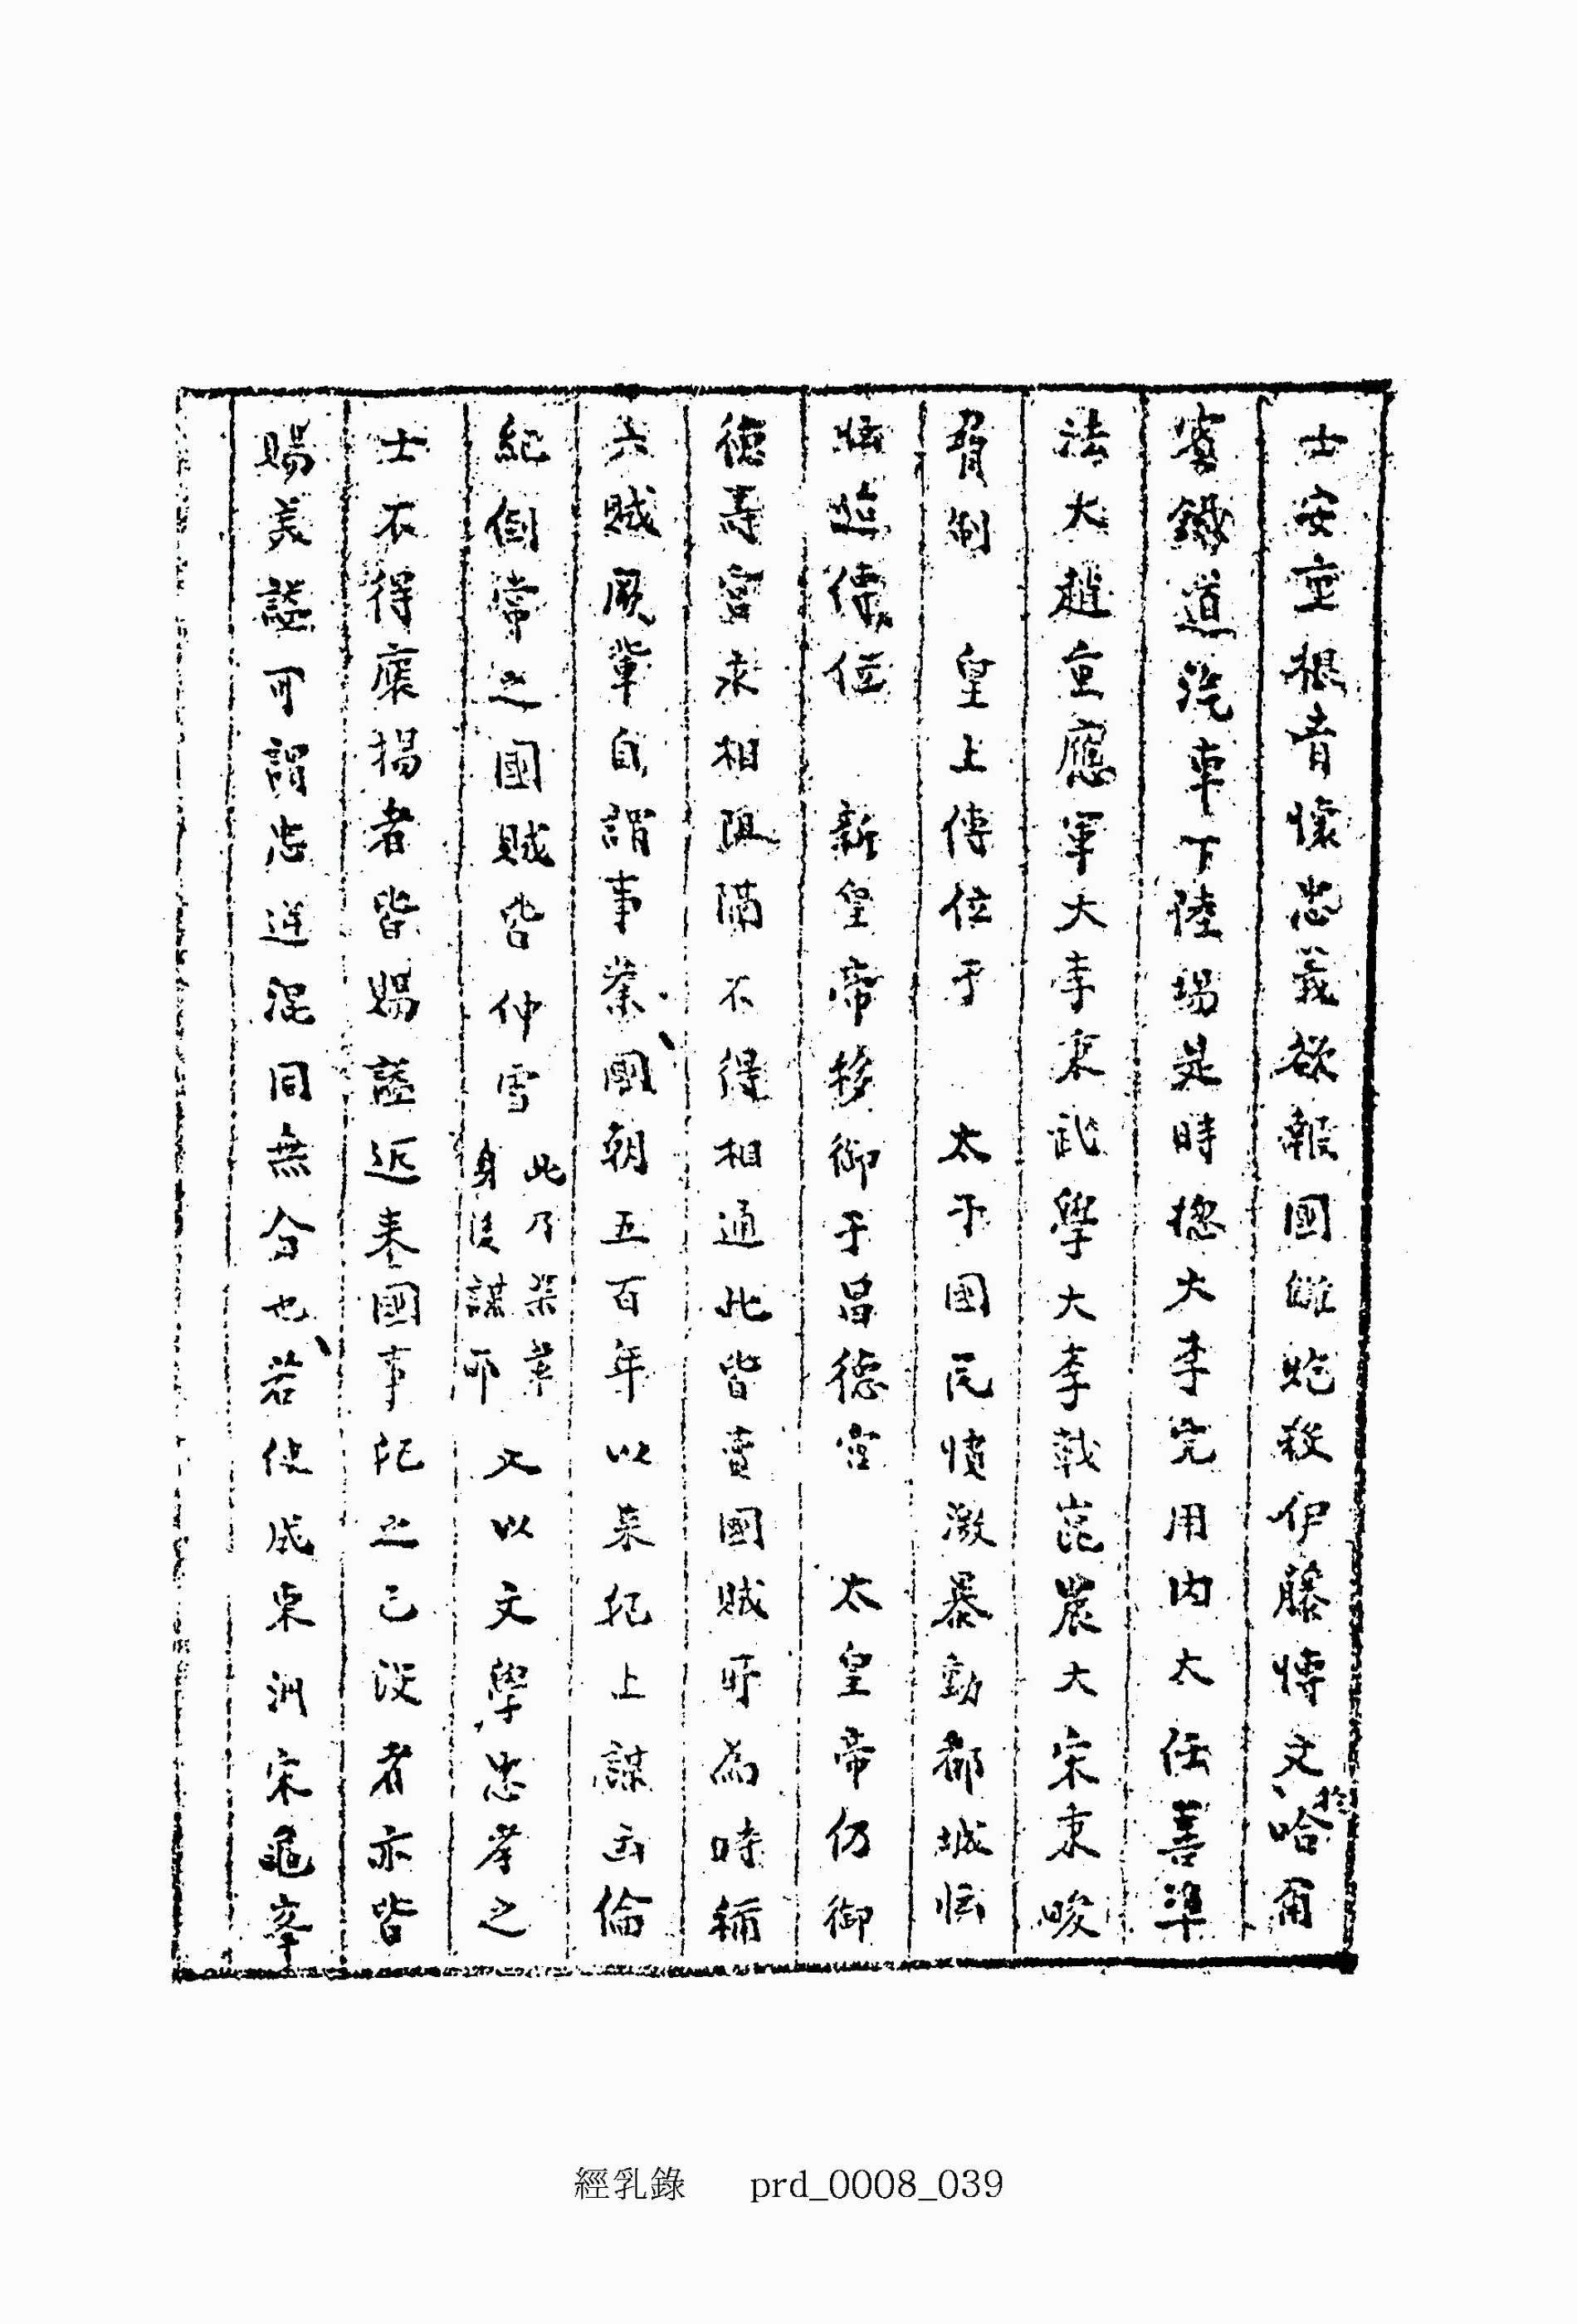 士安重根昔懷忠義欲報國讎砲殺伊藤博文於哈甭
賓鐵道汽車下陸場是時摠大李完用內大任善準
法大趙重應軍大李秉武學大李載崑農大宋秉畯
脅制 皇上傳位于 太子國民憤激暴動都城恇
恇遑傳位 新皇帝移御于昌德宮 太皇帝仍御
德壽宮求相阻隔不得相通此皆賣國賊所爲時稱
六賊厥輩自謂事業國朝五百年以来犯上謀 倫
紀倒常之國賊皆伸雪
此乃渠輩
身後謀耶
又以文學忠孝之
士不得褒揚者皆賜諡近来國事犯之已沒者亦皆
賜美諡可謂忠逆混同無分也若使成東洲宋龜峯
經乳錄 prd_0008_039